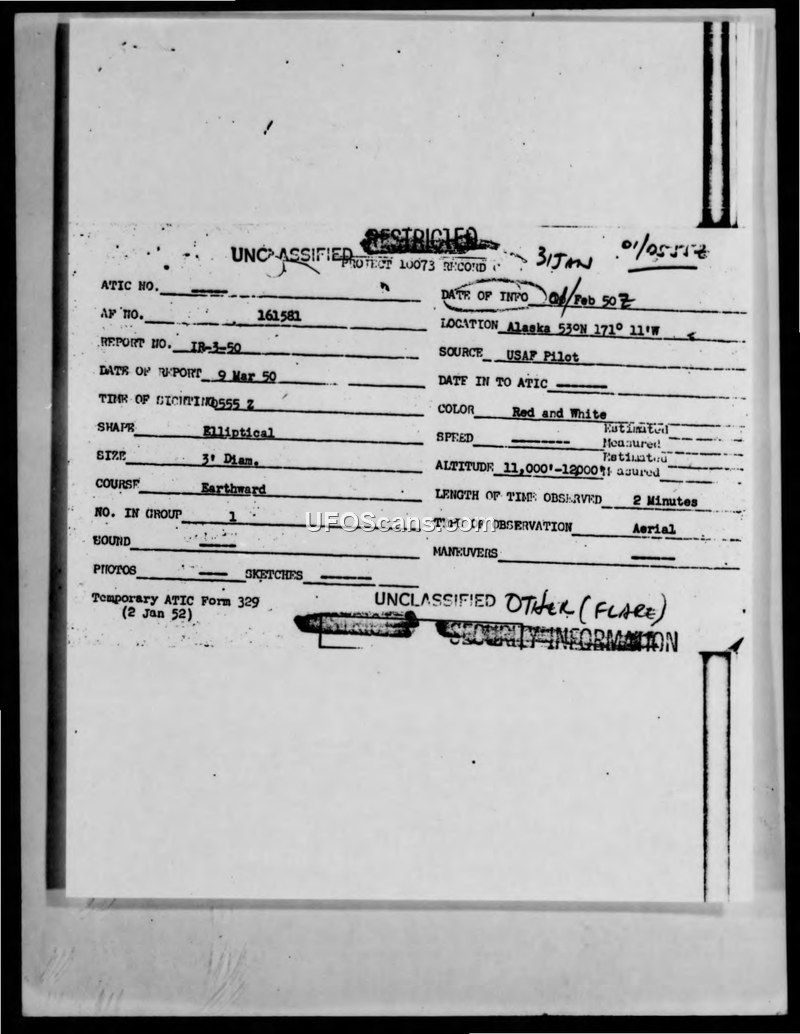 RESTRICTED
UNCLASSIFIED
PROJECT 10073 RECORD
31 JAN 01/0555Z
ATIC NO.
AF NO. 161581
REPORT NO. IR-3-50
DATE OF REPORT 9 Mar 50
TIME OF SIGHTING 0555 Z
SHAPE Elliptical
SIZE 3' Diam.
COURSE Earthward
NO. IN GROUP 1
SOUND
PHOTOS SKETCHES
Temporary ATIC Form 329
(2 Jan 52)
DATE OF INFO Feb 50 Z
LOCATION Alaska 53ON 171° 11'W
SOURCE USAF Pilot
DATE IN TO ATIC
COLOR Red and White
SPEED Estimated
Measured
ALTITUDE 11,000'-12000' Estimated
Measured
LENGTH OF TIME OBSERVED 2 Minutes
TYPE OF OBSERVATION Aerial
MANEUVERS
UFOScans.com
UNCLASSIFIED OTHER (FLARE)
SECURITY INFORMATION